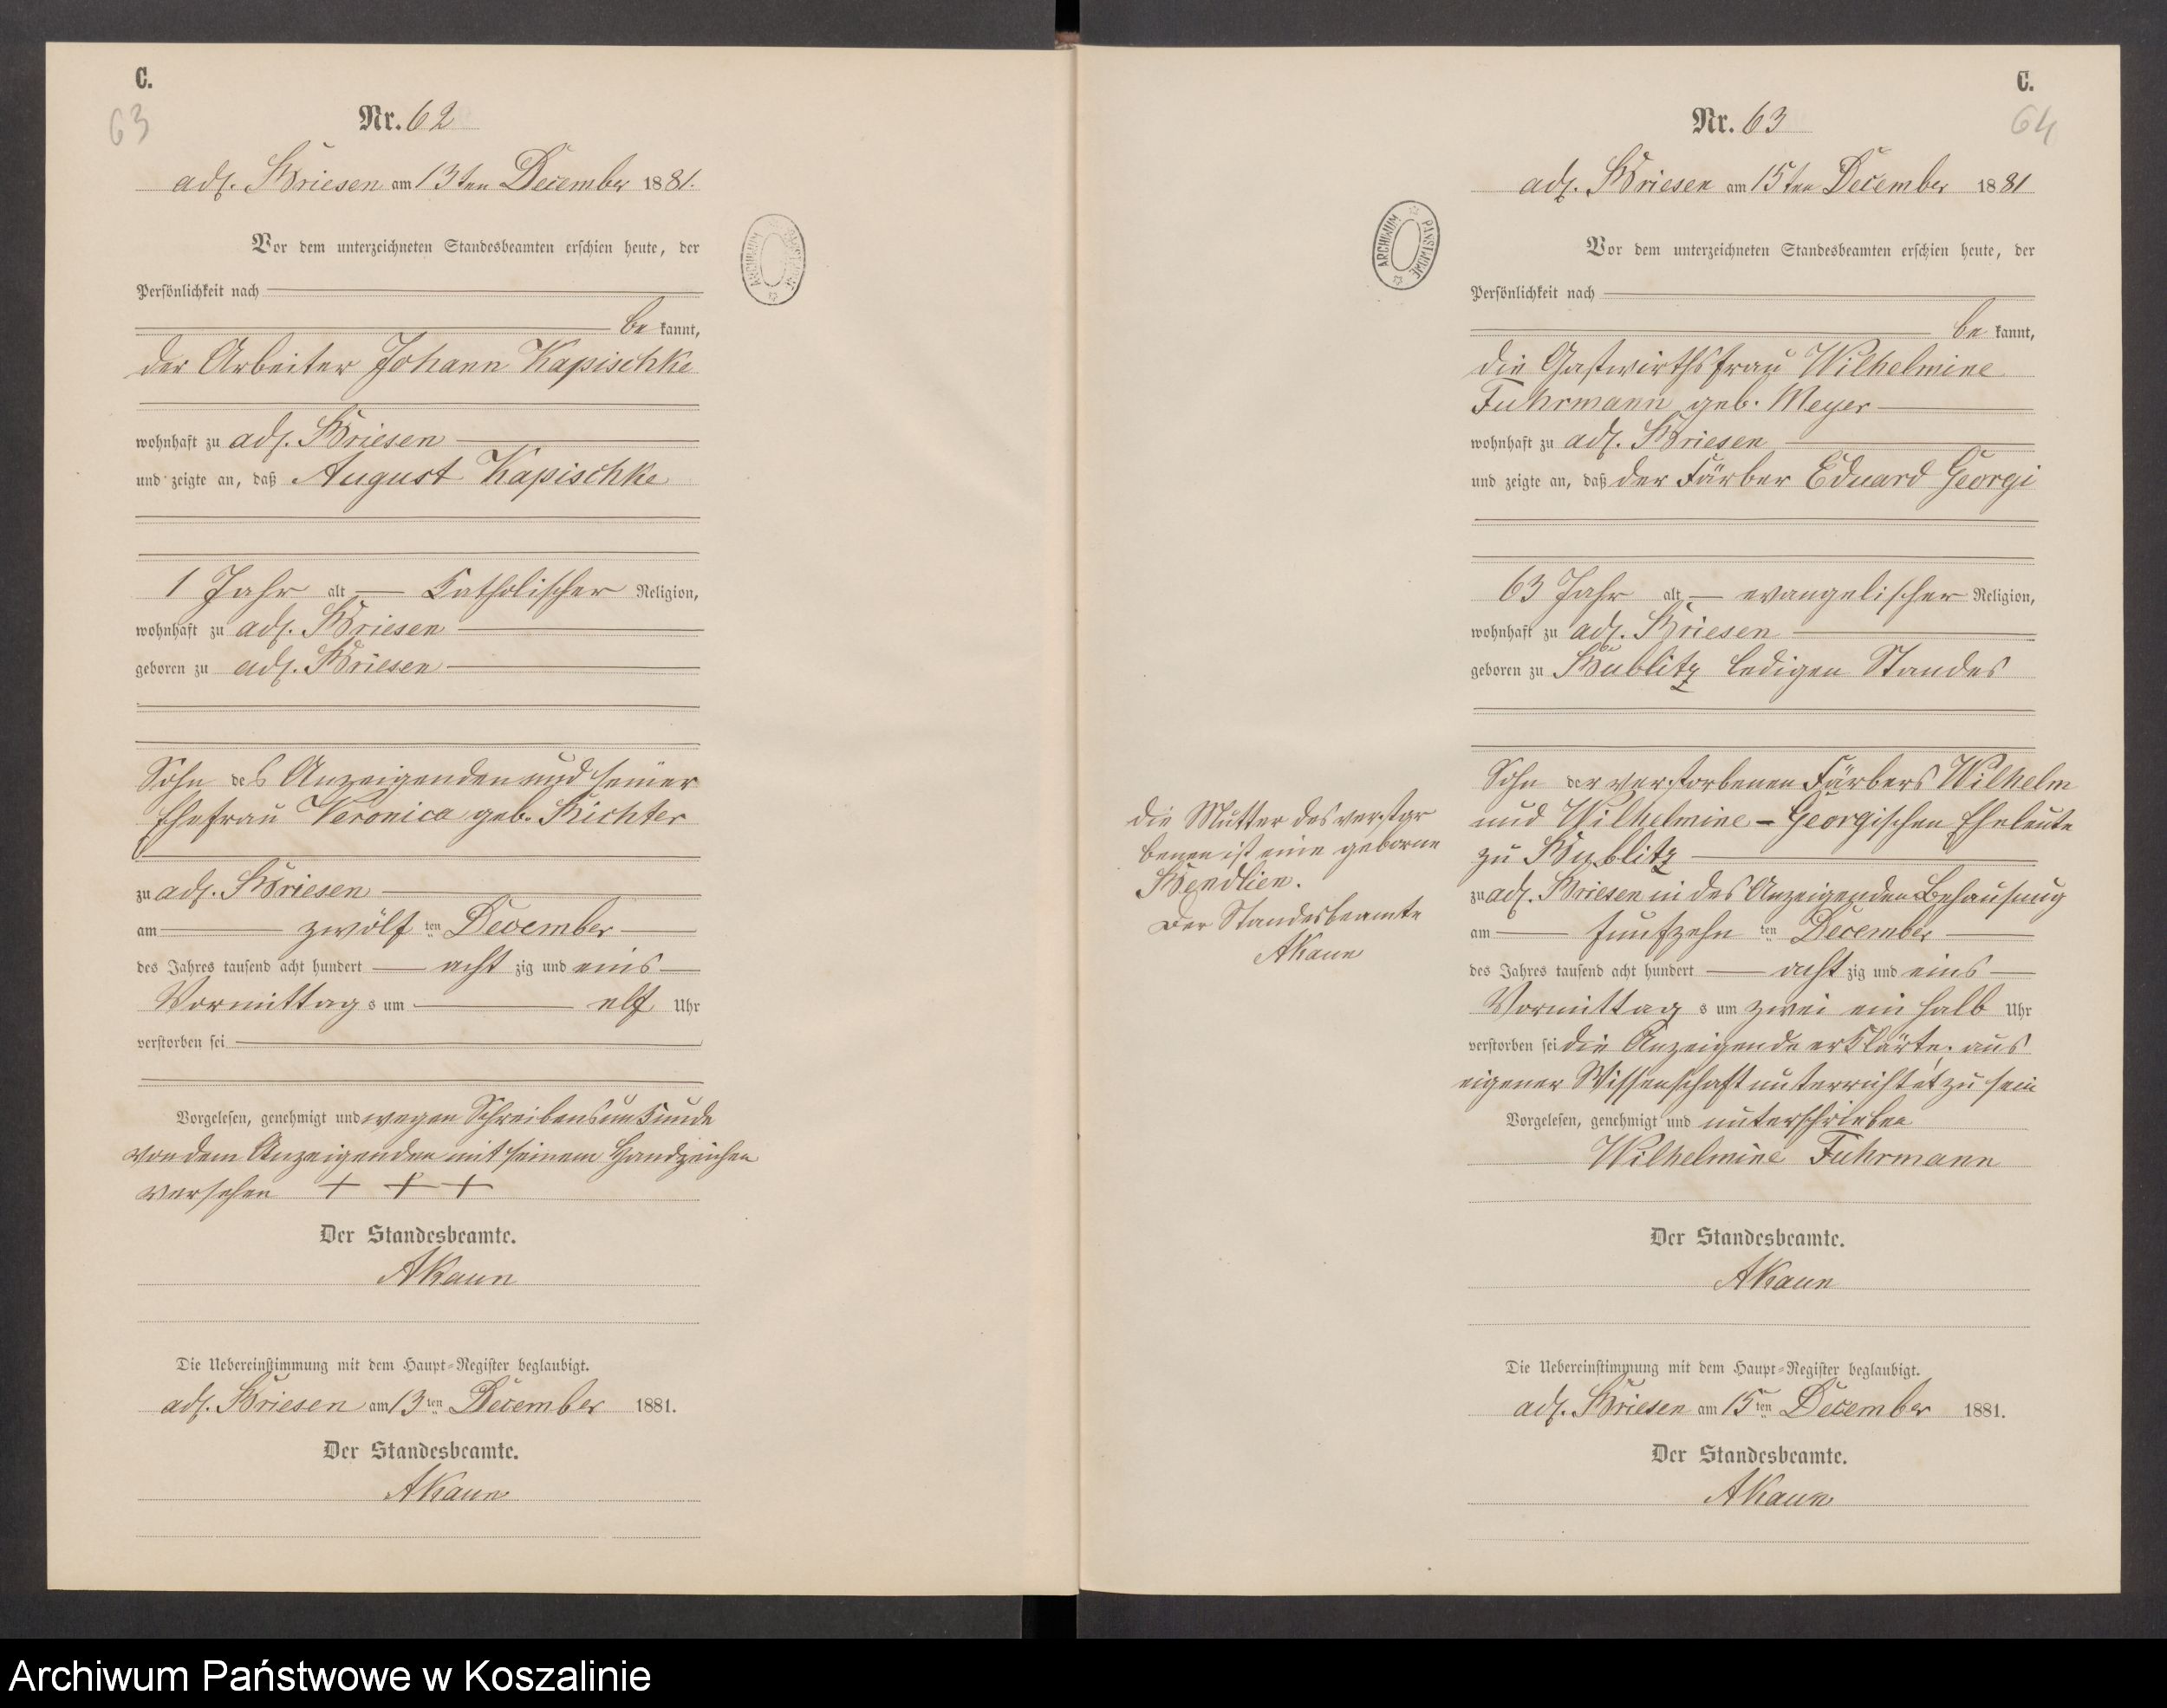 C.
63
Nr. 62
adl. Briesen am 13ten December 1881.
Vor dem unterzeichneten Standesbeamten erschien heute, der
Persönlichkeit nach
be kannt,
der Arbeiter Johann Kapischke
wohnhaft zu adl. Briesen
und zeigte an, daß August Kapischke
1 Jahr alt katholischer Religion,
wohnhaft zu adl. Briesen
geboren zu adl. Briesen
Sohn des Anzeigenden und seiner
Ehefrau Veronica geb. Richter
zu adl. Briesen
am zwölf ten December
des Jahres tausend acht hundert acht zig und eins
Vormittag s um elf Uhr
verstorben sei
Vorgelesen, genehmigt und wegen Schreibensunkunde
von dem Anzeigenden mit seinem Handzeichen
versehen + + +
Der Standesbeamte.
AKaun
Die Uebereinstimmung mit dem Haupt-Register beglaubigt.
adl. Briesen am 13ten December 1881.
Der Standesbeamte.
AKaun
ARCHIWUM PAŃSTWOWE
C.
64
Nr. 63
adl. Briesen am 15ten December 1881
Vor dem unterzeichneten Standesbeamten erschien heute, der
Persönlichkeit nach
be kannt,
die Gastwirthsfrau Wilhelmine
Fuhrmann geb. Meyer
wohnhaft zu adl. Briesen
und zeigte an, daß der Färber Eduard Georgi
63 Jahr alt evangelischer Religion,
wohnhaft zu adl. Briesen
geboren zu Bublitz ledigen Standes
Sohn der verstorbenen Färbers Wilhelm
und Wilhelmine - Georgischen Eheleute
zu Bublitz
zu adl. Briesen in des Anzeigenden Behausung
am funfzehn ten December
des Jahres tausend acht hundert acht zig und eins
Vormittag s um zwei ein halb Uhr
verstorben sei die Anzeigende erklärte, aus
eigener Wissenschaft unterrichtet zu sein
Vorgelesen, genehmigt und unterschrieben
Wilhelmine Fuhrmann
Der Standesbeamte.
AKaun
Die Uebereinstimmung mit dem Haupt-Register beglaubigt.
adl. Briesen am 15ten December 1881.
Der Standesbeamte.
AKaun
ARCHIWUM PAŃSTWOWE
die Mutter des verstor
benen ist eine geborne
Wendlien.
Der Standesbeamte
AKaun
Archiwum Państwowe w Koszalinie